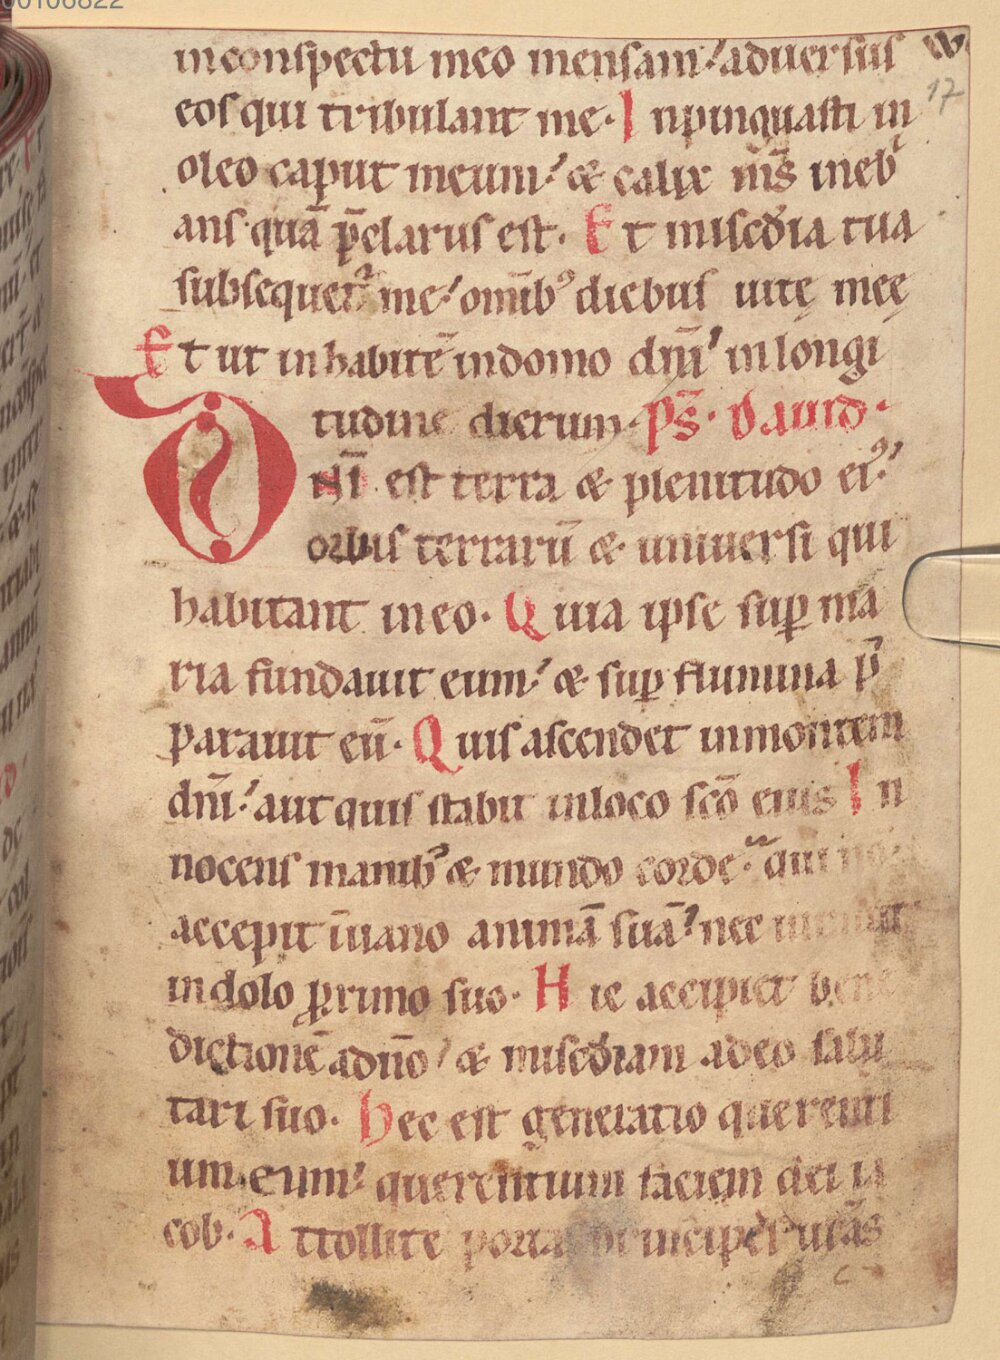 00106822
17
in conspectu meo mensam. aduersus
eos qui tribulant me. Inpinguasti in
oleo caput meum. & calix m̄s inebⁱ
ans quā p̄clarus est. Et mis̄c̄dia tua
subsequet᷑ me. omībꝰ diebus uitę meę
Et ut inhabitē in domo dn̄i in longi
tudine dierum. ps̄. Dauid.
Dn̄i est terra & plenitudo eiꝰ.
orbis terrarū & uniuersi qui
habitant in eo. Quia ipse sup̲ ma
ria fundauit eum. & sup̲ flumina p̄
parauit eū. Quis ascendet in montem
dn̄i. aut quis stabit in loco scō eius In
nocens manibꝰ & mundo corde. qui n̄o
accepit ī uano animā suā. nec iurauit
in dolo ꝓximo suo. Hic accipiet bene
dictionē a dn̄o & misc̄diam a deo salu
tari suo. Hec est generatio querenti
um eum. querentium faciem dei ia
cob. Attollite portas principes ur̄as